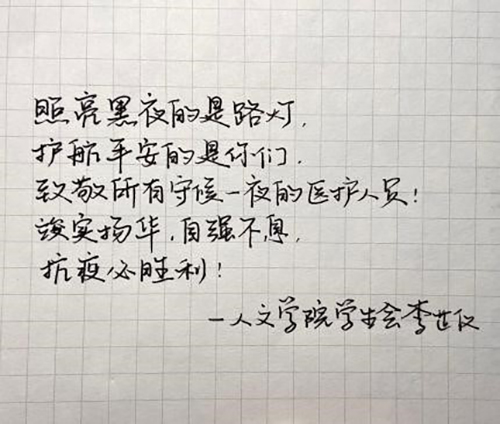 照亮黑夜的是路灯,
护航平安的是你们.
致敬所有守候一夜的医护人员!
竢实扬华,自强不息,
抗疫必胜利!
—人文学院学生会李世仪